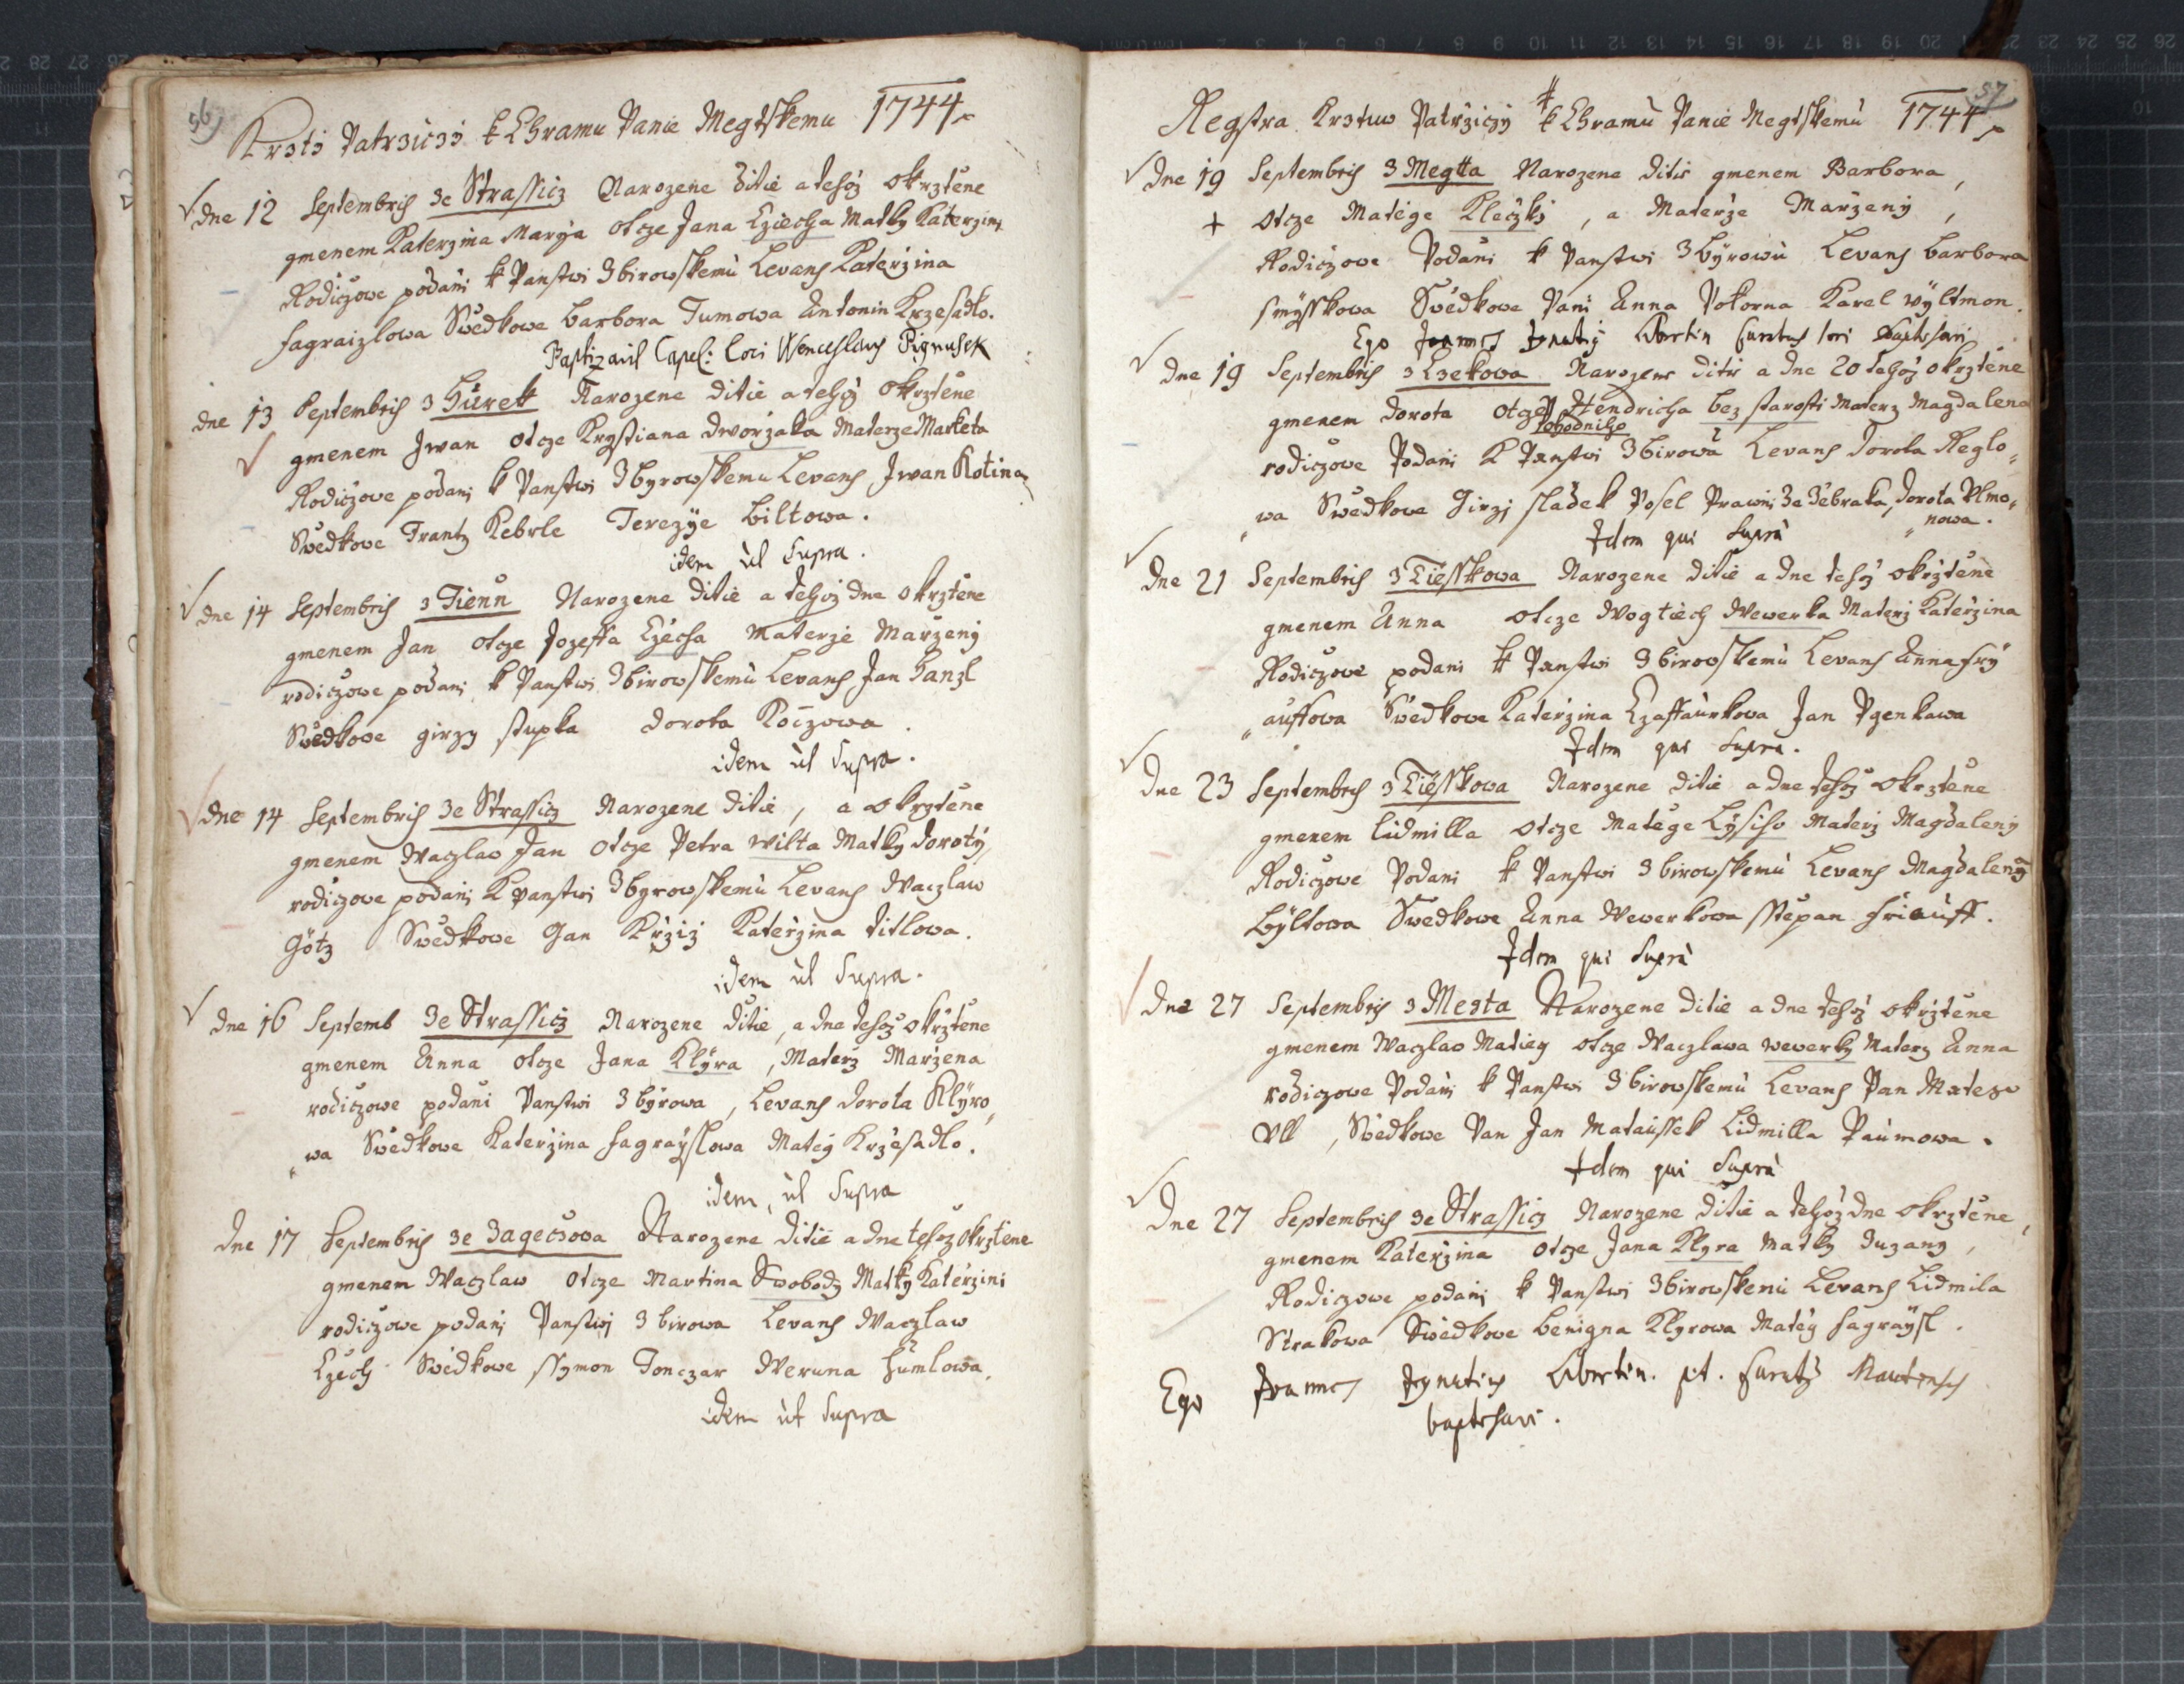 56
Krsti Patrziczi k Chramu Panie Megtskemu 1744
dne 12 Septembris ze Strassicz Narozene ditie a tehoz okrztene
gmenem Katerzina Marya otcze Jana Cziecha Matky Katerzini
Rodiczove podani k Panstwi Zbirowskemu Levans Katerzina
Fagraizlowa Swedkove Barbora Tumowa Antonin Krzesadlo.
Baptizavit Capel: loci Wenceslaus Pignusek
dne 13 Septembris z Hurek Narozene ditie a tehoz okrztene
gmenem Jwan otcze Krystiana Dworzaka Materze Marketa
Rodiczove podani k Panstwi Zbyrowskemu Levans Jwan Kotina
Swedkove Frantz Keberle Terezye Biltowa.
idem ut supra.
dne 14 Septembris z Tienn Narozene ditie a tehoz dne okrztene
gmenem Jan otcze Jozeffa Czecha Materze Marzeny
rodiczove podani k Panstwi Zbirowskemu Levans Jan Hanzl
Swedkove girzy stupka Dorota Koczowa.
idem ut supra.
dne 14 Septembris ze Strassicz Narozene ditie, a okrztene
gmenem Waczlav Jan otcze Petra Wilta Matky Doroty,
rodiczove podani k Panstwi Zbyrowskemu Levans Waczlaw
Götz Swedkove Jan Krziz Katerzina Titlowa.
idem ut supra.
dne 16 Septemb ze Strassicz Narozene ditie, a dne tehoz okrztene
gmenem Anna otcze Jana Klyra, Materz Marzena
rodiczove podani Panstwi Zbyrowa, Levans Dorota Klyro
wa Swedkove Katerzina Fagrayslowa Matieg Krzesadlo.
idem, ut supra
dne 17 Septembris ze Zageczowa Narozene ditie a dne tehoz okrztene
gmenem Waczlaw otcze Martina Swobody Matky Katerzini
rodiczove podani Panstwi Zbirowa Levans Waczlaw
Czech Swedkove Ssymon Tonczar Weruna Humlowa,
idem ut supra
57
Regstra Krstuw Patrziczy k Chramu Panie Megtskemu 1744
dne 19 Septembris z Megtta Narozene ditie gmenem Barbora,
+ otcze Matege Kleczky, a Materze Marzeny,
Rodiczove Podani k Panstwi Zbyrowu Levans Barbora
Smysskowa Svedkove Pani Anna Pokorna Karel Wyltmon.
Ego Joannes Ignatius Libertin Curatus loci Baptisavi
dne 19 Septembris z Czekowa Narozene ditie a dne 20 tehoz okrztene
gmenem Dorota otcze Hendricha bez starosti Materz Magdalena
Pohodniho
rodiczove Podani k Panstwi Zbirowa Levans Dorota Reglo
wa Swedkove Girzj sladek Posel Prawni ze Zebraka, Dorota Ulmo
nowa.
Idem qui supra
dne 21 Septembris z Tiesskowa Narozene ditie a dne tehoz okrztene
gmenem Anna otcze Wogtiech Wewerka Materz Katerzina
Rodiczove podani k Panstwi Zbirowskemu Levans Anna Fry
auffowa Swedkove Katerzina Czaffaurkova Jan Pgenkawa
Idem qui supra.
dne 23 Septembris z Tiesskowa Narozene ditie a dne tehoz okrztene
gmenem Lidmilla otcze Matege Lysiho Materz Magdaleny
Rodiczove Podani k Panstwi Zbirowskemu Levans Magdaleny
Byltowa Swedkove Anna Wewerkowa Sstepan Friauff.
Idem qui supra
dne 27 Septembris z Mesta Narozene ditie a dne tehoz okrztene
gmenem Waczlav Matieg otcze Waczlawa Wewerky Materz Anna
rodiczove Podani k Panstwi Zbirowskemu Levans Pan Matez
Ull, Swedkove Pan Jan Mataussek Lidmilla Paumowa.
Idem qui supra
dne 27 Septembris ze Strassicz Narozene ditie a tehoz dne okrztene,
gmenem Katerzina otcze Jana Klyra Matky Zuzany,
Rodiczove podani k Panstwi Zbirowskemu Levans Lidmila
Strakowa Swedkove Benigna Klyrowa Matieg Fagraysl.
Ego Joannes Ignatius Libertin. p.t. Curatus Mautensis
baptisavi.